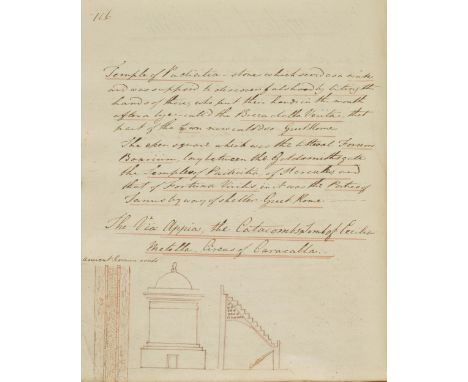 116
Temple of Pudicitia - stone which served as a
and was supposed to discover falshood by biting the
hands of those, who put their hands in the mouth
after a lye - called the Bocca della Verita. that
part of the Town now called Great Rome
The open square which was the Forum
Boarium, lay between the Goldsmiths gate
the Temples of Pudicitia of Hercules and
that of Fortuna Virilis in it was the
Janus by way of shelter Great Rome
The Via Appia, the Catacombs Tomb of Cecilia
Metella, Circus of Caracalla.
ancient Roman roads